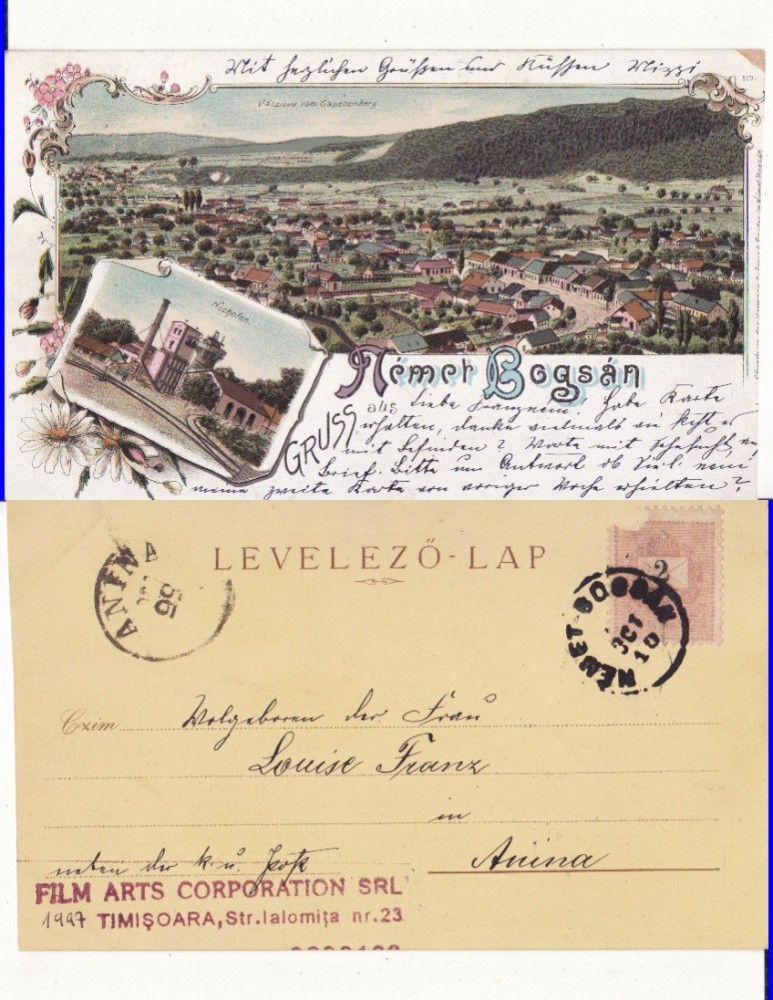 Mit herzlichen Grüßen und Küssen Mizzi
Vasziova vom Capellenberg
Hochofen.
Német Bogsán
GRUSS aus
Liebe habe Karte
erhalten, danke vielmals wie steht es
mit Befinden? Warte mit Sehnsucht,
Brief. Bitte um Antwort ob
meine zweite Karte von voriger Woche erhielten?
LEVELEZŐ-LAP
ANINA
2
NÉMET-BOGSÁN
OCT
10
Czim Wolgeboren der Frau
Louise Franz
in
neben der k. u. Post Anina
FILM ARTS CORPORATION SRL
1997 TIMIȘOARA, Str. Ialomița nr. 23